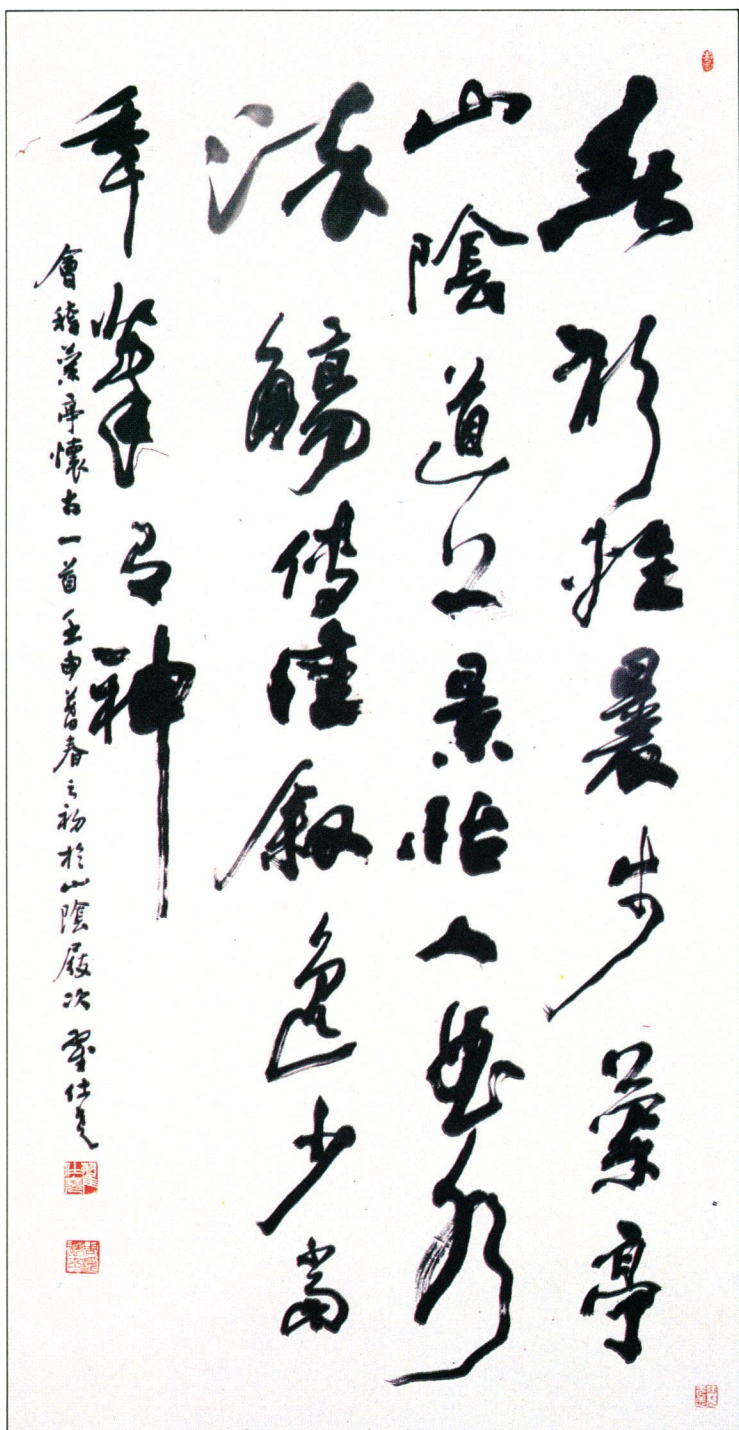 晨步蘭亭
山陰道上景怡人曲水
流觴傳佳敘逸少當
年筆有神
會稽蘭亭懷古一首 壬申暮春之初於山陰屐次 翟仕堯